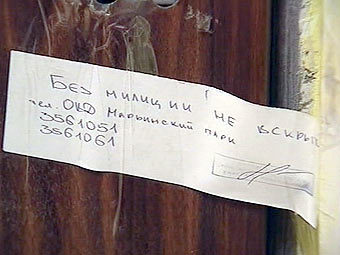 Без милиции не
тел. ОВД Марьинский парк
3561051
3561061